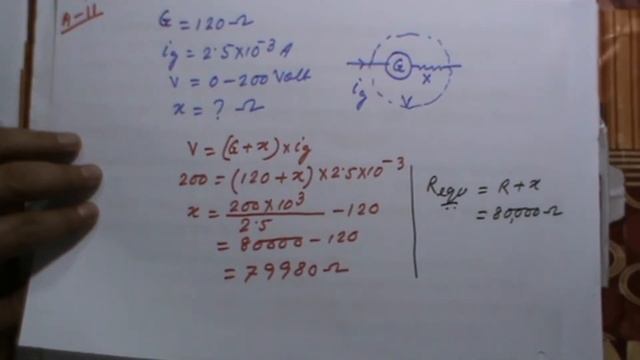 A-11
G = 120 Ω
ig = 2.5×10⁻³ A
V = 0 – 200 Volt
x = ? Ω
G
x
ig
V
V = (G + x) × ig
200 = (120 + x) × 2.5×10⁻³
x = 200×10³ / 2.5 – 120
= 80000 – 120
= 79980 Ω
Requ = R + x
= 80,000 Ω